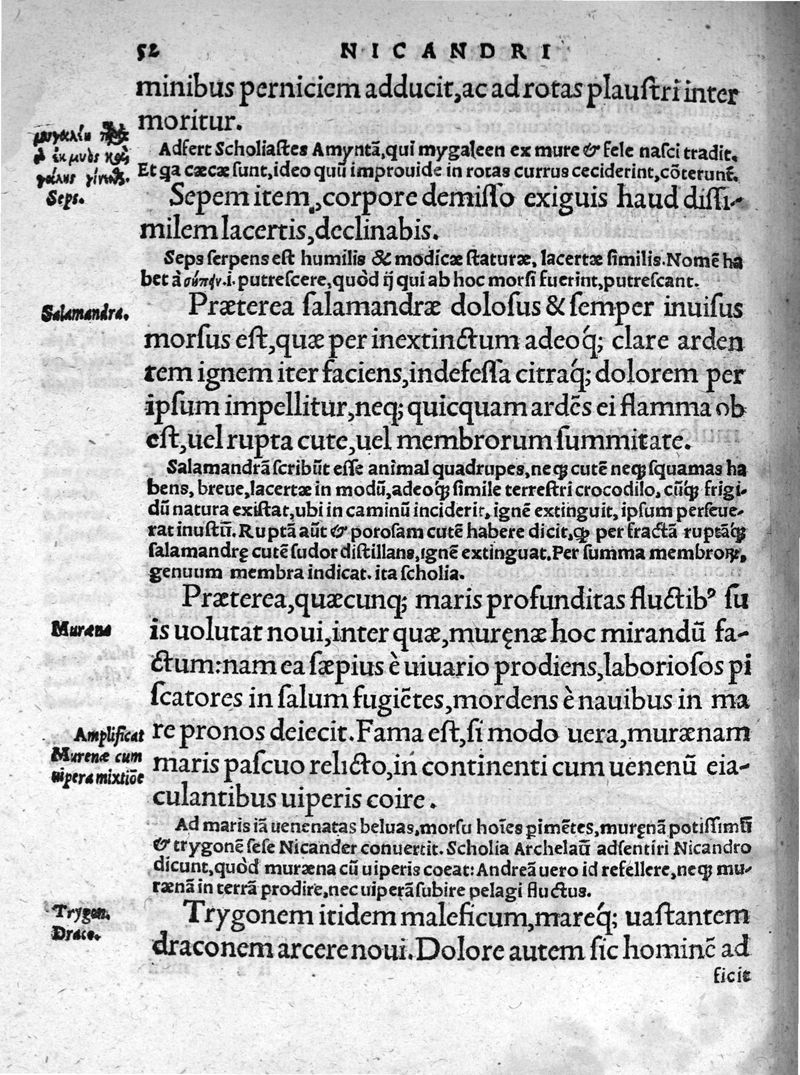 52 NICANDRI
minibus perniciem adducit, ac ad rotas plauſtri inter
moritur.
Adfert Scholiaſtes Amyntã, qui mygaleen ex mure & fele naſci tradit.
Et qa cæcæ ſunt, ideo quũ improuide in rotas currus ceciderint, cõterunt̃.
Seps.
Sepem item, corpore demiſſo exiguis haud diſſi-
milem lacertis, declinabis.
Seps ſerpens eſt humilis & modicæ ſtaturæ, lacertæ ſimilis. Nomẽ ha
bet à σήπειν .i. putreſcere, quòd ij qui ab hoc morſi fuerint, putreſcant.
Salamandra.
Præterea ſalamandræ doloſus & ſemper inuiſus
morſus eſt, quæ per inextinctum adeoq; clare arden
tem ignem iter faciens, indefeſſa citraq; dolorem per
ipſum impellitur, neq; quicquam ardẽs ei flamma ob
eſt, uel rupta cute, uel membrorum ſummitate.
Salamandrã ſcribũt eſſe animal quadrupes, neqȝ cutẽ neqȝ ſquamas ha
bens, breue, lacertæ in modũ, adeoqȝ ſimile terreſtri crocodilo, cũqȝ frigi-
dũ natura exiſtat, ubi in caminũ inciderit, ignẽ extinguit, ipſum perſeue-
rat inuſtũ. Ruptã aũt & poroſam cutẽ habere dicit, qȝ per fractã ruptãqȝ
ſalamandrę cutẽ ſudor diſtillans, ignẽ extinguat. Per ſumma membroꝝ,
genuum membra indicat. ita ſcholia.
Præterea, quæcunq; maris profunditas fluctibꝰ ſu
Muræna
is uolutat noui, inter quæ, muręnæ hoc mirandũ fa-
ctum: nam ea ſæpius è uiuario prodiens, laborioſos pi
ſcatores in ſalum fugiẽtes, mordens è nauibus in ma
Amplificat
Murenæ cum
uipera mixtiõe
re pronos deiecit. Fama eſt, ſi modo uera, murænam
maris paſcuo relicto, in continenti cum uenenũ eia-
culantibus uiperis coire.
Ad maris iã uenenatas beluas, morſu hoĩes pimẽtes, muręnã potiſſimũ
& trygonẽ ſeſe Nicander conuertit. Scholia Archelaũ adſentiri Nicandro
dicunt, quòd muræna cũ uiperis coeat: Andreã uero id refellere, neqȝ mu-
rænã in terrã prodire, nec uiperã ſubire pelagi fluctus.
Trygon.
Draco.
Trygonem itidem maleficum, mareq; uaſtantem
draconem arcere noui. Dolore autem ſic hominẽ ad
ficit